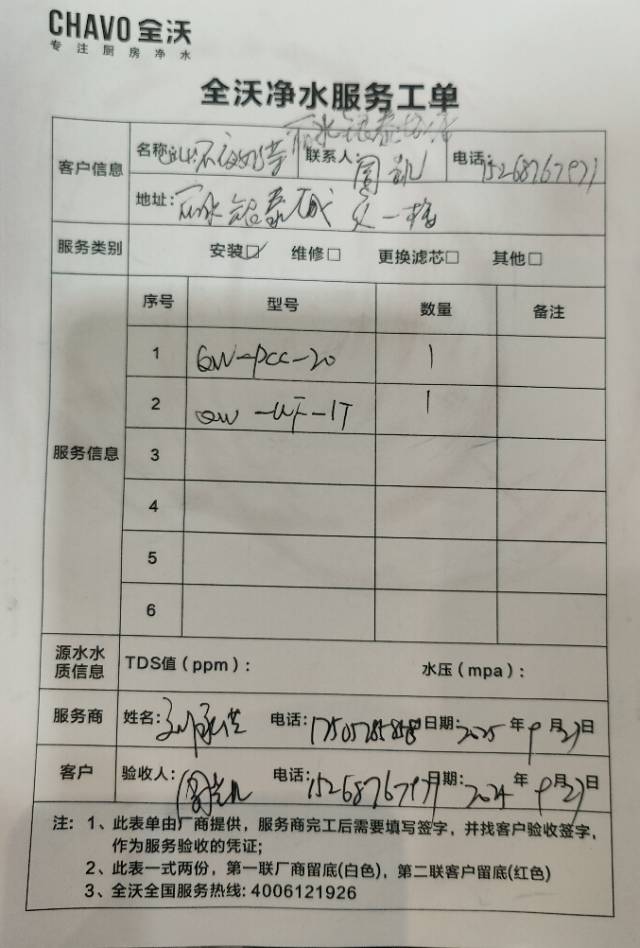 CHAVO 全沃
专注厨房净水
全沃净水服务工单
客户信息 名称: 联系人: 周凯 电话: 15268767971
地址: 丽水银泰城 一楼
服务类别 安装☑ 维修□ 更换滤芯□ 其他□
服务信息 序号 型号 数量 备注
1 QW-PCC-20 1
2 QW-UF-1T 1
3
4
5
6
源水水质信息 TDS值(ppm): 水压(mpa):
服务商 姓名: 电话: 日期: 2025年9月27日
客户 验收人: 周凯 电话: 15268767971 日期: 2024年9月27日
注: 1、此表单由厂商提供,服务商完工后需要填写签字,并找客户验收签字,
作为服务验收的凭证;
2、此表一式两份,第一联厂商留底(白色),第二联客户留底(红色)
3、全沃全国服务热线: 4006121926